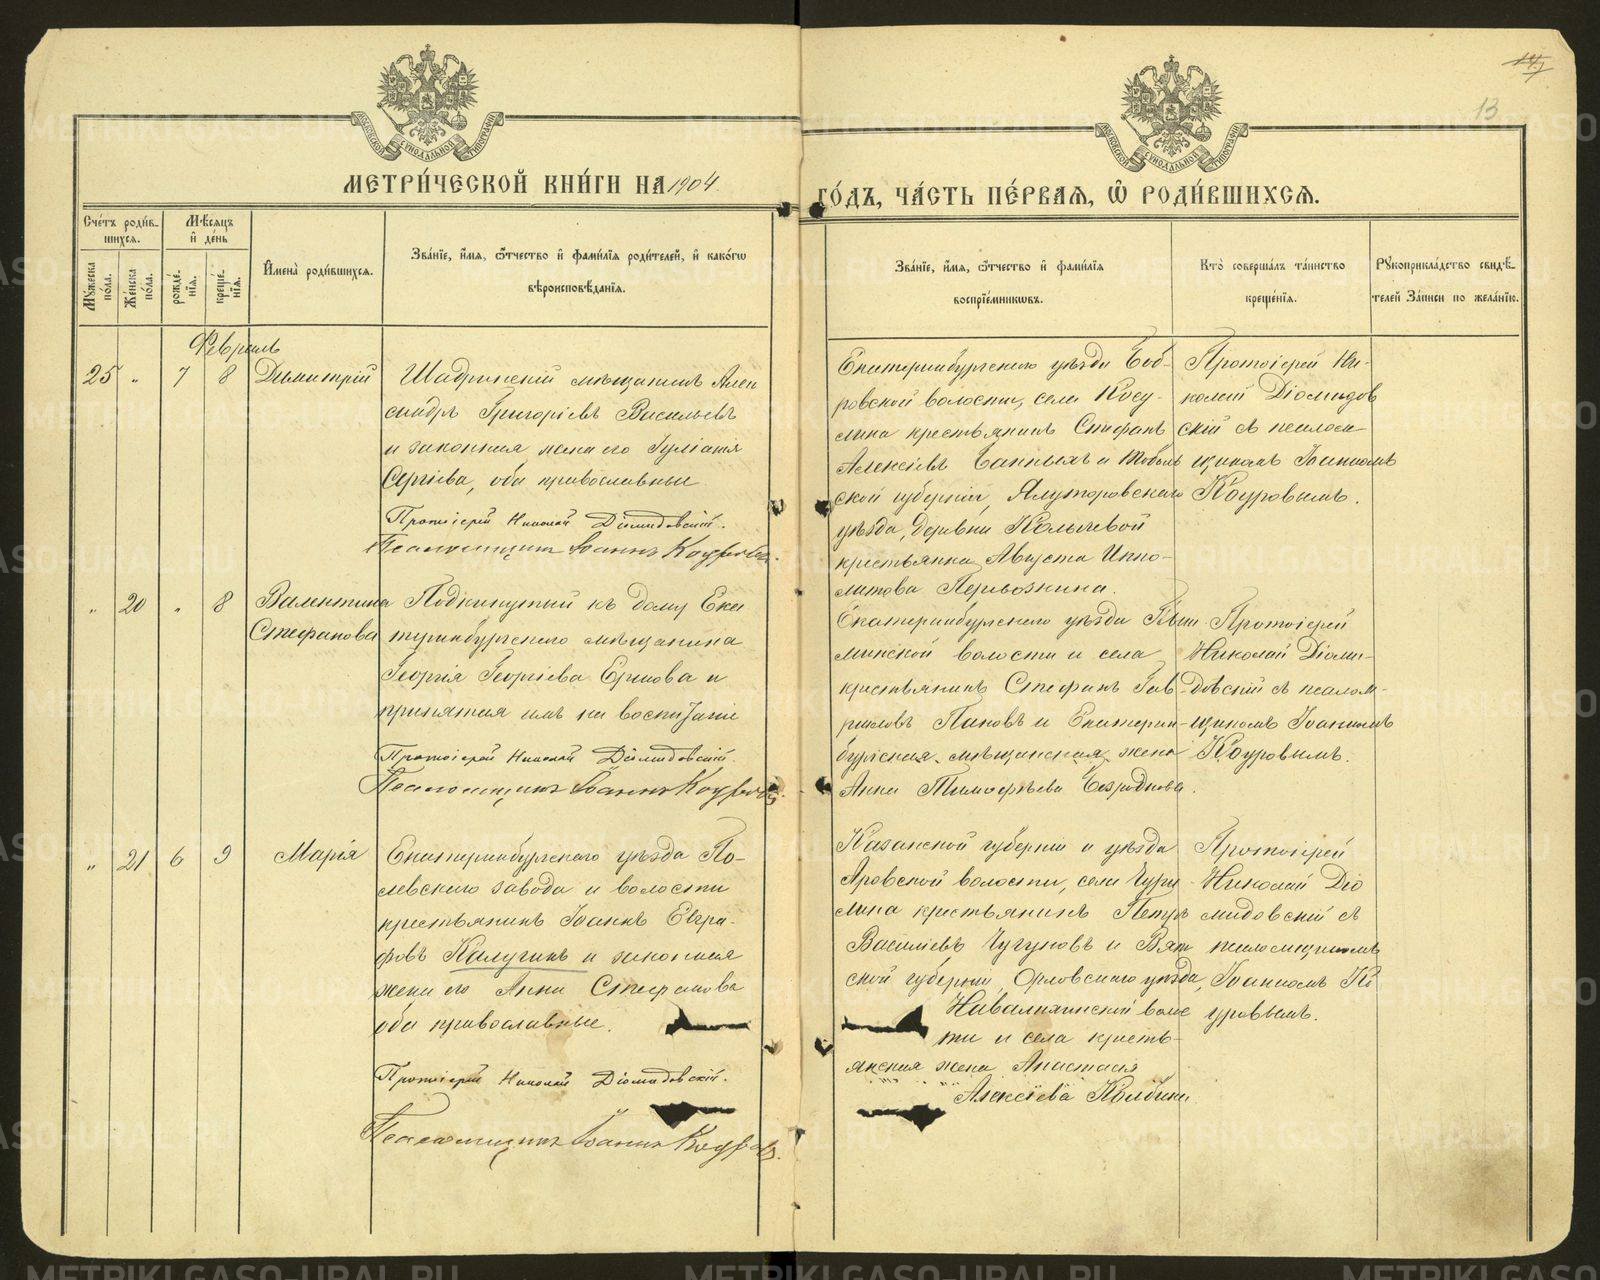 МЕТРИ́ЧЕСКОЙ КНИ́ГИ НА 1904
ГО́ДЪ, ЧА́СТЬ ПЕ́РВАЯ, Ѡ РОДИ́ВШИХСЯ.
14
13
Сче́тъ роди́в-
шихся.
Мѣ́сяцъ
и де́нь
Мꙋ́жеска
по́ла.
Же́нска
по́ла.
рожде́-
нїя.
креще́-
нїя.
Имена̀ роди́вшихся.
Зва́нїе, и́мя, ѻ́тчество и фами́лїя роди́телей, и како́гѡ
вѣроисповѣ́данїя.
Зва́нїе, и́мя, ѻ́тчество и фами́лїя
воспрїе́мникѡвъ.
Кто̀ соверша́лъ та́инство
креще́нїя.
Рꙋкоприкла́дство свидѣ́-
телей за́писи по жела́нїю.
Февраль
25 " 7 8 Димитрій
Шадринскій мѣщанинъ Алек
сандръ Григоріевъ Васильевъ
и законная жена его Іуліанія
Сергіева, оба православные
Протоіерей Николай Діомидовскій.
Псаломщикъ Іоаннъ Коуровъ.
Екатеринбургскаго уѣзда Боб-
ровской волости, села Косу-
лина крестьянинъ Стефанъ
Алексіевъ Банныхъ и Тоболь
ской губерніи, Ялуторовскаго
уѣзда, деревни Колычевой
крестьянка Августа Иппо-
литова Первохина.
Протоіерей Ни-
колай Діомидов
скій съ псалом
щикомъ Іоанномъ
Коуровымъ.
" 20 " 8 Валентина
Стефанова
Подкинутый къ дому Ека
теринбургскаго мѣщанина
Георгія Георгіева Ершова и
принятая имъ на воспитаніе
Протоіерей Николай Діомидовскій.
Псаломщикъ Іоаннъ Коуровъ.
Екатеринбургскаго уѣзда Пыш
минской волости и села
крестьянинъ Стефанъ Гав-
риловъ Пановъ и Екатерин-
бургская мѣщанская жена
Анна Тимофѣева Безроднова.
Протоіерей
Николай Діоми-
довскій съ псалом-
щикомъ Іоанномъ
Коуровымъ.
" 21 6 9 Марія
Екатеринбургскаго уѣзда По-
левскаго завода и волости
крестьянинъ Іоаннъ Евгра-
фовъ Калугинъ и законная
жена его Анна Стефанова
оба православные.
Протоіерей Николай Діомидовскій.
Псаломщикъ Іоаннъ Коуровъ.
Казанской губерніи и уѣзда
Аровской волости, села Чури
лина крестьянинъ Петръ
Василіевъ Чугуновъ и Вят
ской губерніи, Орловскаго уѣзда,
волос
ти и села кресть-
янская жена Анастасія
Алексіева Колбина
Протоіерей
Николай Діо
мидовскій съ
псаломщикомъ
Іоанномъ Ко
уровымъ.
METRIKI.GASO-URAL.RU